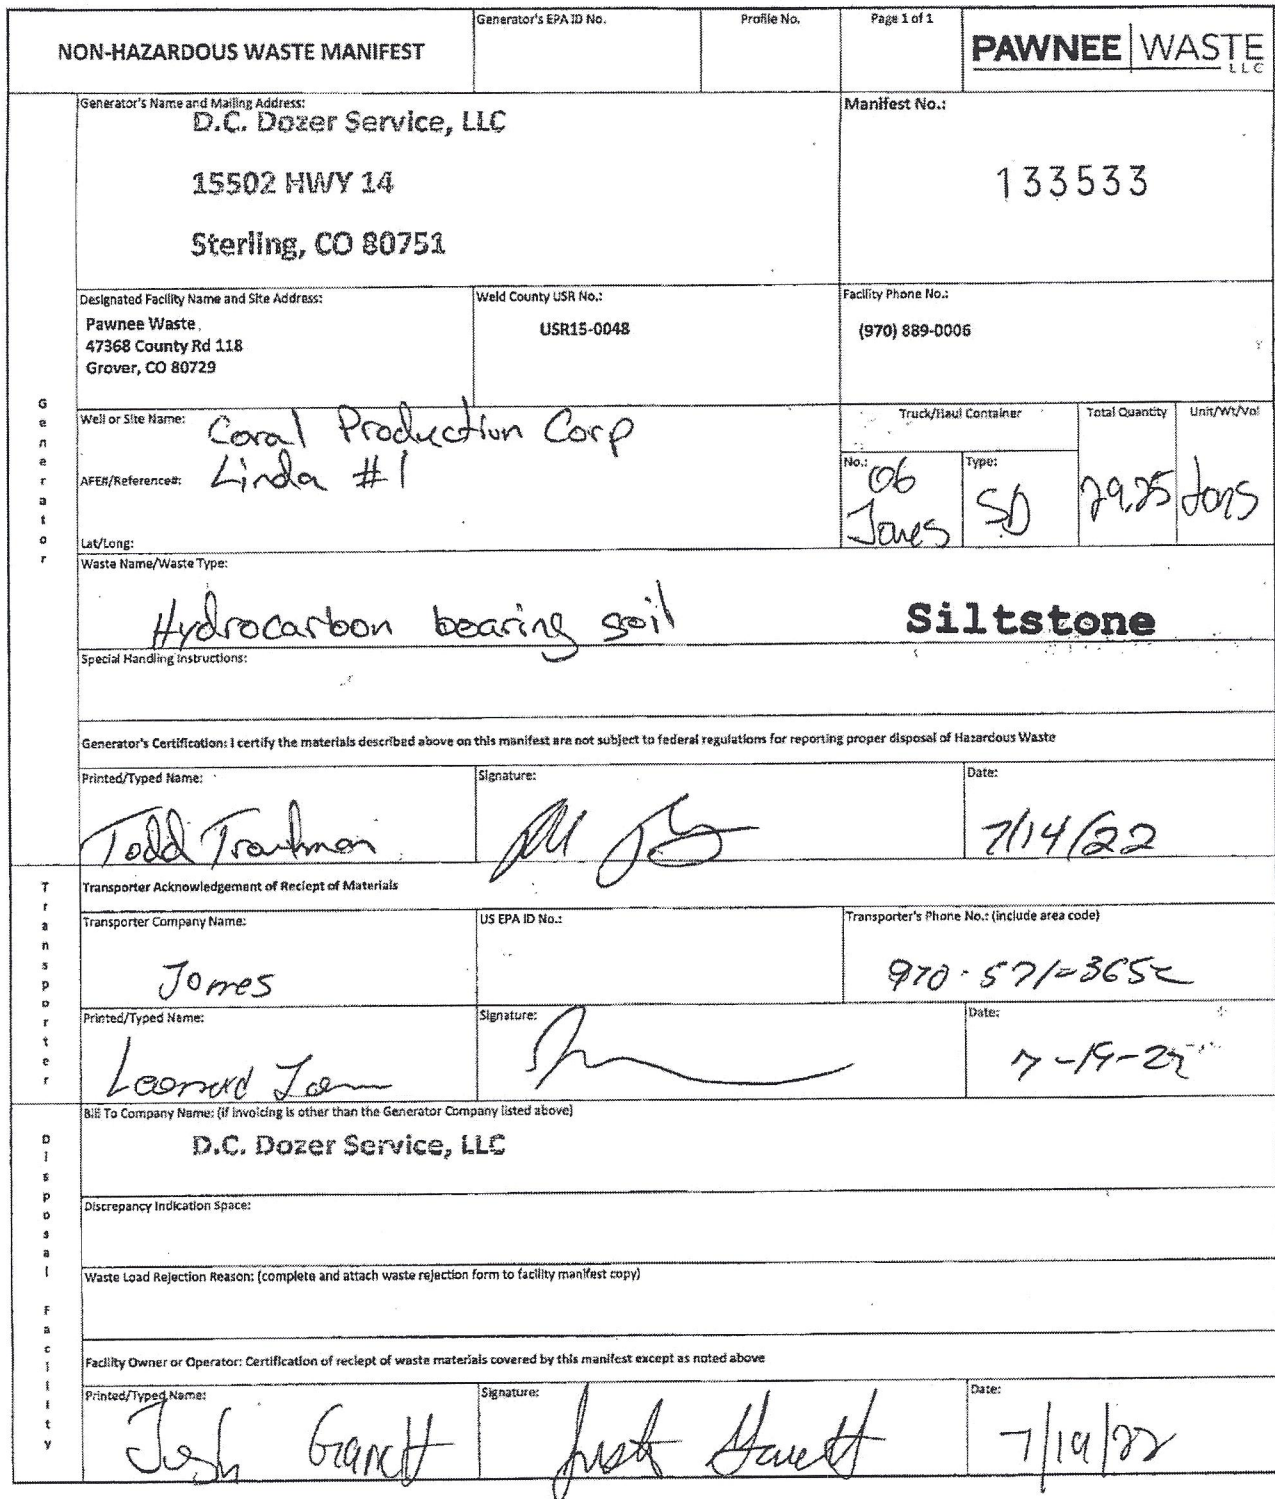 NON-HAZARDOUS WASTE MANIFEST
Generator's EPA ID No.
Profile No.
Page 1 of 1
PAWNEE WASTE
LLC
Generator's Name and Mailing Address:
D.C. Dozer Service, LLC
15502 HWY 14
Sterling, CO 80751
Manifest No.:
133533
Designated Facility Name and Site Address:
Pawnee Waste
47368 County Rd 118
Grover, CO 80729
Weld County USR No.:
USR15-0048
Facility Phone No.:
(970) 889-0006
Generator
Well or Site Name: Coral Production Corp
AFE#/Reference#: Linda #1
Lat/Long:
Truck/Haul Container
No.: 06
Jones
Type:
SD
Total Quantity
29.25
Unit/Wt/Vol
tons
Waste Name/Waste Type:
Hydrocarbon bearing soil
Siltstone
Special Handling Instructions:
Generator's Certification: I certify the materials described above on this manifest are not subject to federal regulations for reporting proper disposal of Hazardous Waste
Printed/Typed Name:
Todd Trautman
Signature:
Date:
7/14/22
Transporter
Transporter Acknowledgement of Reciept of Materials
Transporter Company Name:
Jones
US EPA ID No.:
Transporter's Phone No.: (include area code)
970-571-365
Printed/Typed Name:
Leonard
Signature:
Date:
7-19-22
Disposal Facility
Bill To Company Name: (if invoicing is other than the Generator Company listed above)
D.C. Dozer Service, LLC
Discrepancy Indication Space:
Waste Load Rejection Reason: (complete and attach waste rejection form to facility manifest copy)
Facility Owner or Operator: Certification of reciept of waste materials covered by this manifest except as noted above
Printed/Typed Name:
Signature:
Date:
7/19/22